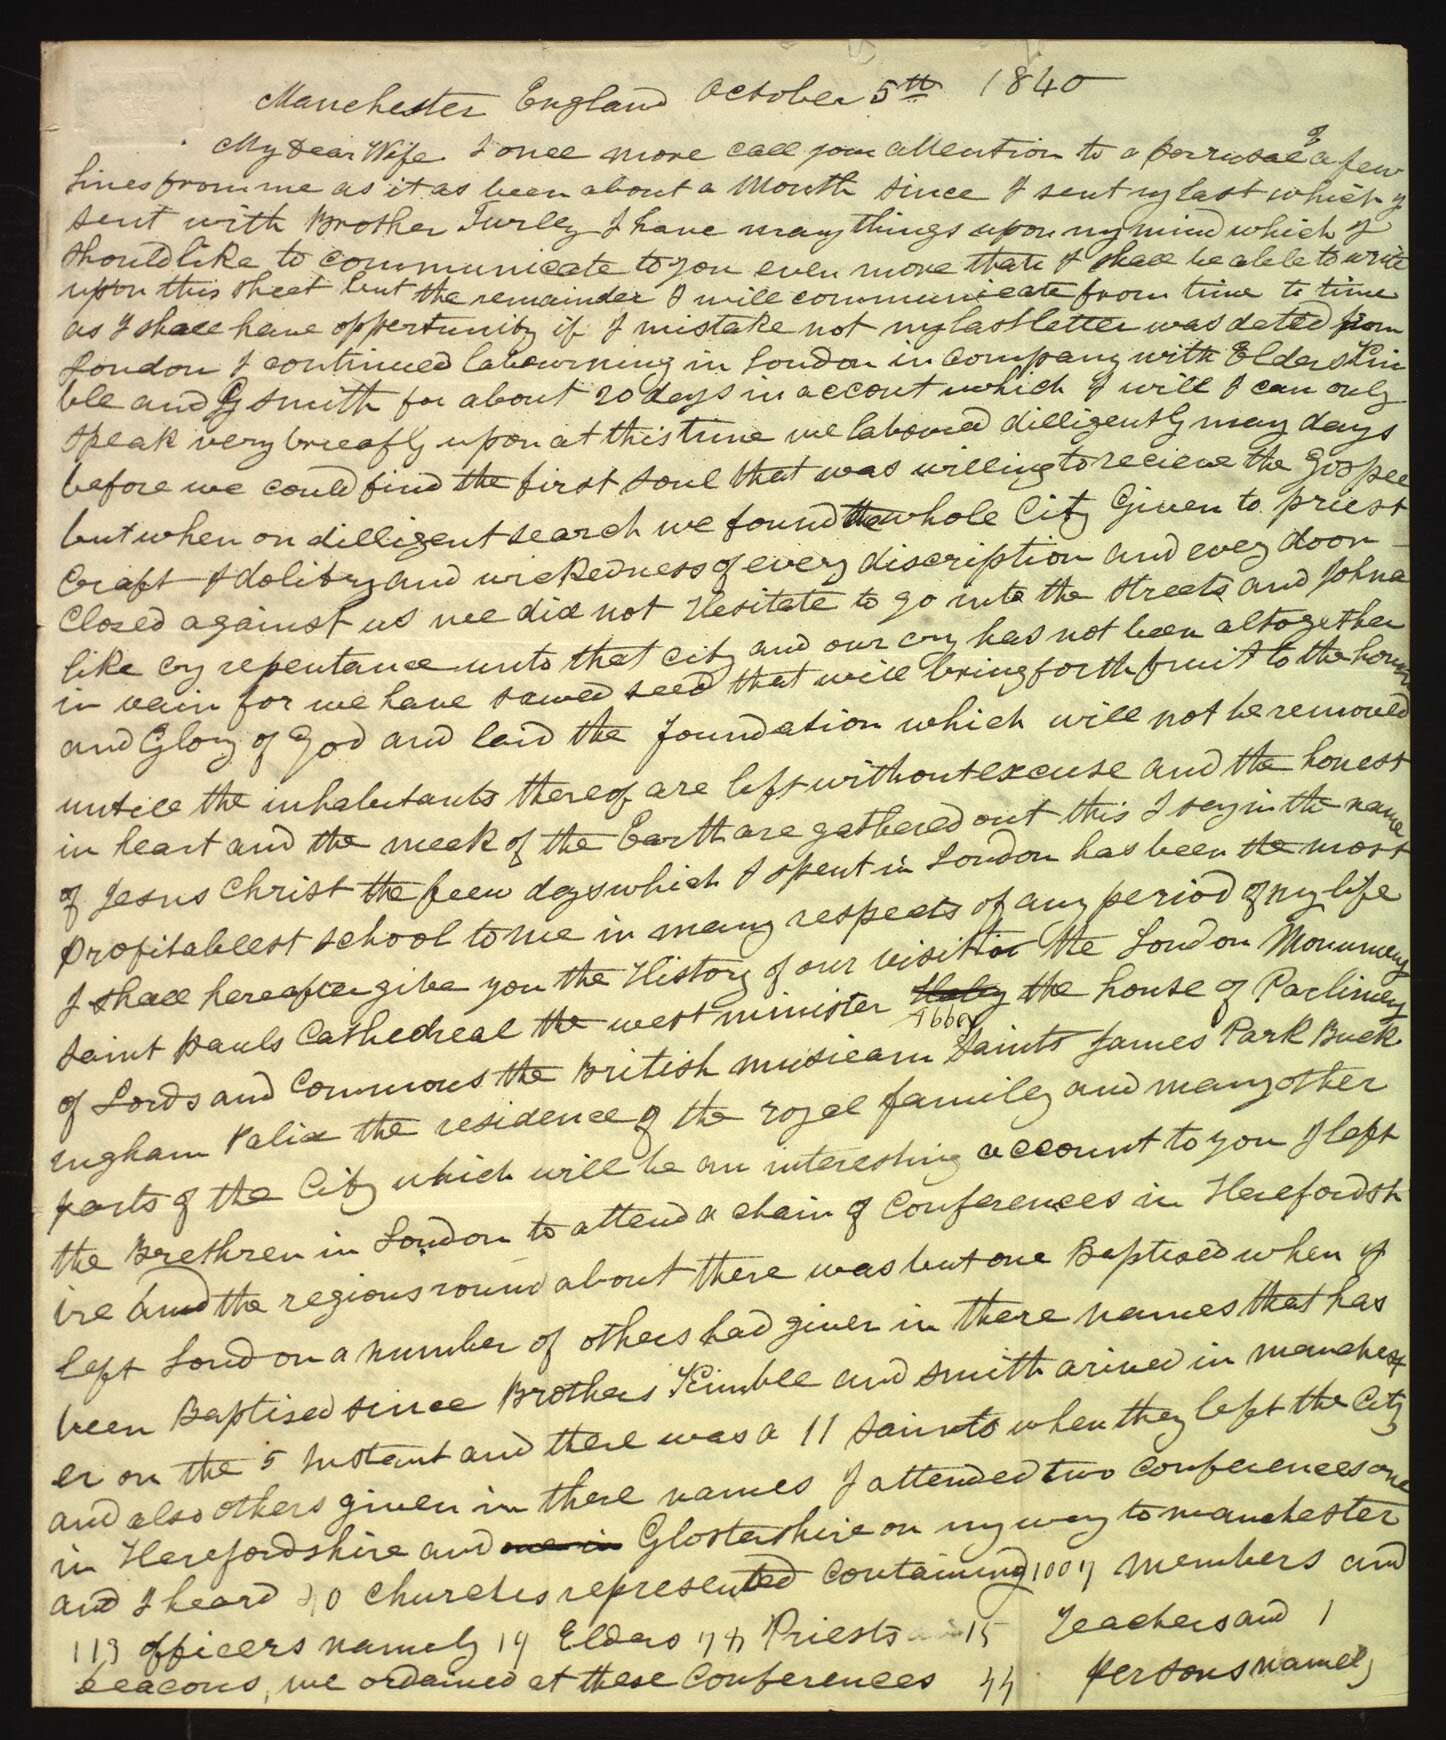 Manchester England October 5th 1840
My Dear Wife I once more call your attention to a perrusal of a few
lines from me as it as been about a Month since I sent my last which I
sent with Brother Turley I have many things upon my mind which I
should like to communicate to you even more than I shall be able to write
upon this sheet but the remainder I will communicate from time to time
as I shall have oppertunity if I mistake not my last letter was dated from
London I continued labourning in London in company with Elders Kim
ble and G Smith for about 20 days in account which I will I can only
speak very brieafly upon at this time we laboured dilligently many days
before we could find the first soul that was willing to recieve the Gospel
but when on dilligent search we found the whole City Given to priest
Craft Idolitry and wickedness of every discription and evey door
Closed against us we did not Hesitate to go into the streets and Johna
like cry repentance unto that city and our cry has not been altogether
in vain for we have sowed seed that will bring forth fruit to the honour
and Glory of God and laid the foundation which will not be removed
untill the inhabitants thereof are left without excuse and the honest
in heart and the meek of the Earth are gathered out this I say in the name
of Jesus Christ the feew days which I spent in London has been the most
profitableest school to me in many respects of any period of my life
I shall hereafter give you the History of our visit to the London Monument
Saint Pauls Cathedreal the west minister Abbey the house of Parliment
of Lords and Commons the British musieam Saints James Park Buck
ingham Palice the residence of the royal family and many other
parts of the City which will be an interesting account to you I left
the Brethren in London to attend a chain of Conferences in Herefordsh
ire and the regions round about there was but one Baptised when I
left London a number of others had given in there names that has
been Baptised since Brothers Kimble and Smith arived in manchest
er on the 5 Instant and there was a 11 Saints when they left the City
and also others given in there names I attended two Conferences one
in Herefordshire and one in Glostershire on my way to manchester
and I heard 40 Churches represented Containing 1007 members and
113 officers namely 19 Elders 78 Priests 15 Teachers and 1
deacons, we ordained at these Conferences 44 persons namely